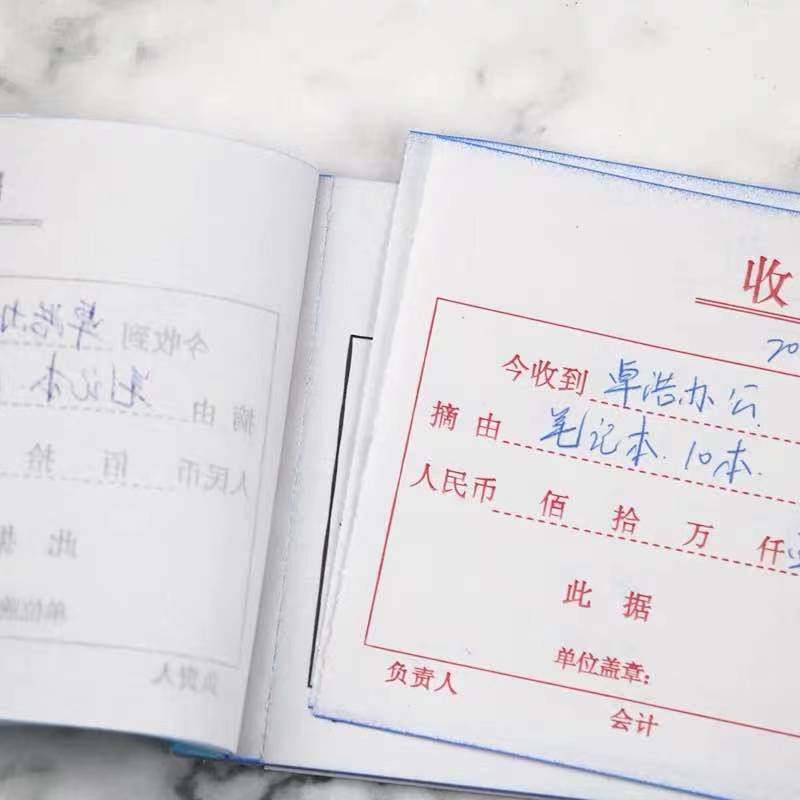 收
20
今收到 卓浩办公
摘由 笔记本 10本
人民币 佰 拾 万 仟
此据
单位盖章：
负责人
会计
今收到 卓浩
摘由 笔记本
人民币 佰 拾
此
单位
负责人